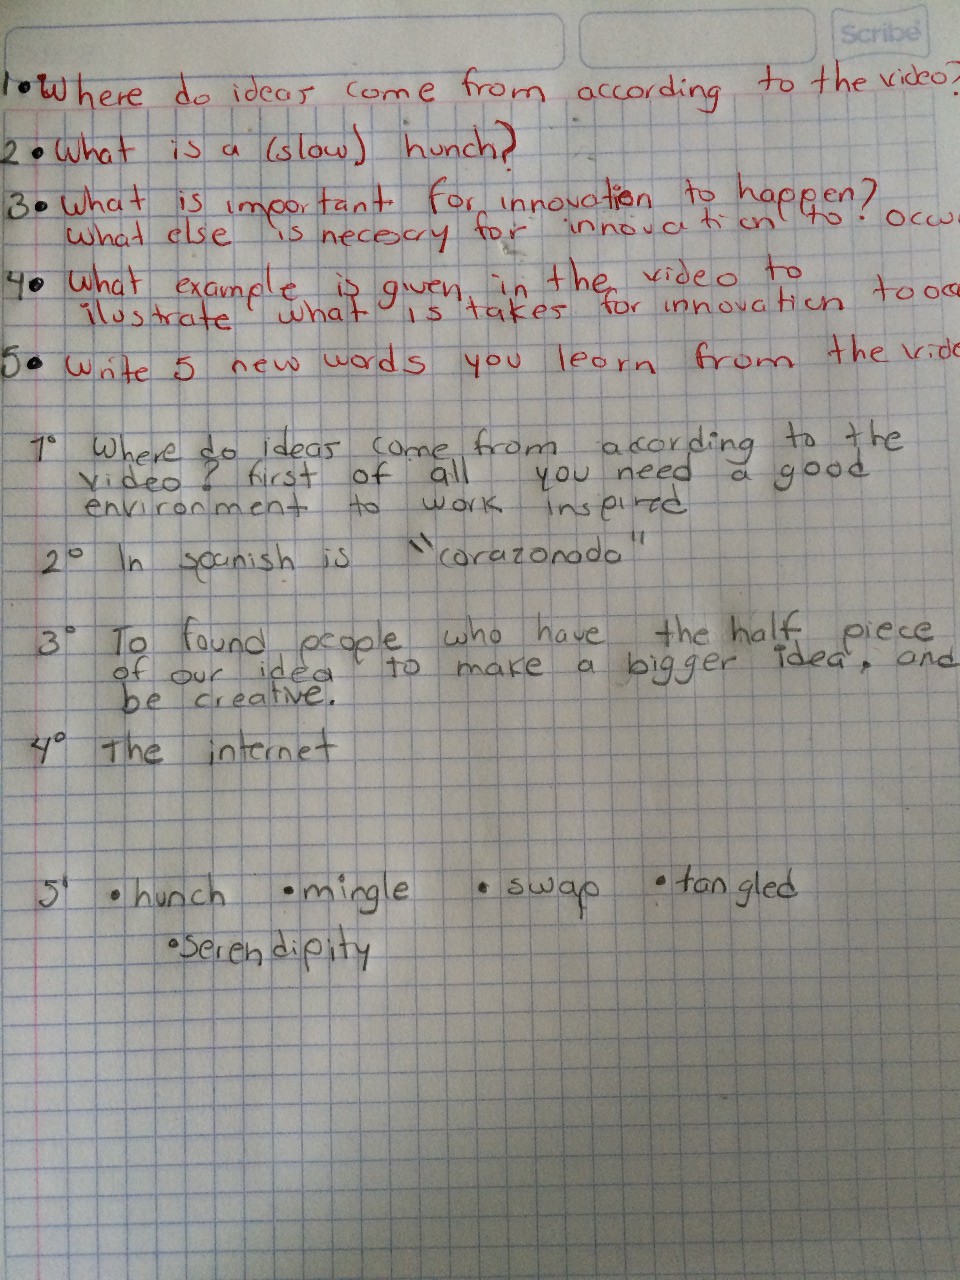 Scribe
1• Where do ideas come from according to the video?
2• What is a (slow) hunch?
3• What is important for innovation to happen?
What else is necesary for innovation to? occu
4• What example is given in the video to
ilustrate what is takes for innovation to occ
5• Write 5 new words you learn from the vide
1° Where do ideas come from acording to the
video? First of all you need a good
environment to work inspired
2° In spanish is "corazonada"
3° To found people who have the half piece
of our idea to make a bigger idea, and
be creative.
4° The internet
5° •hunch •mingle •swap •tangled
•Serendipity